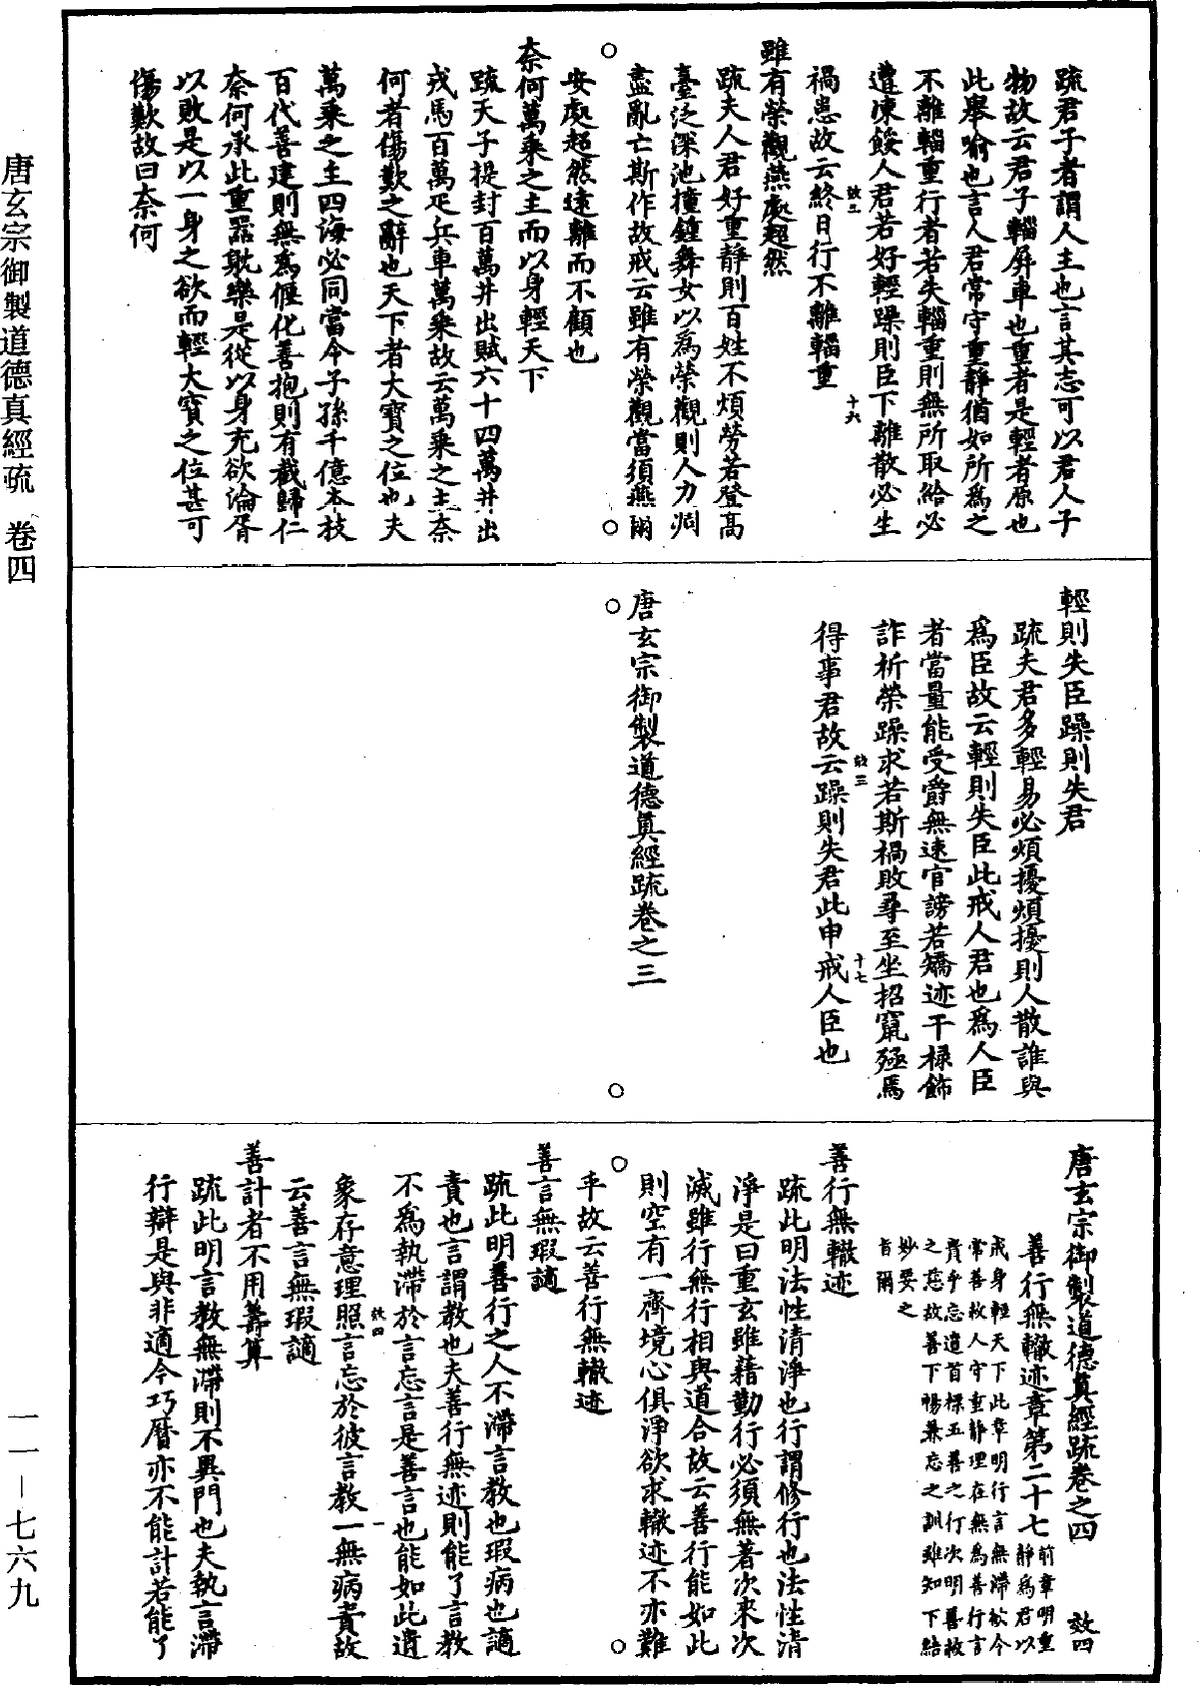 疏君子者謂人主也言其志可以君人子
物故云君子輜屏車也重者是輕者原也
此舉喻也言人君常守重靜猶如所爲之
不離輜重行者若失輜重則無所取給必
遭凍餒人君若好輕躁則臣下離散必生
禍患故云終日行不離輜重
效三 十六
雖有榮觀燕處超然
疏夫人君好重靜則百姓不煩勞若登高
臺泛深池撞鍾舞女以爲榮觀則人力凋
盡亂亡斯作故戒云雖有榮觀當須燕爾
安處超然遠離而不顧也
奈何萬乘之主而以身輕天下
疏天子提封百萬井出賦六十四萬井出
戎馬百萬疋兵車萬乘故云萬乘之主奈
何者傷歎之辭也天下者大寶之位也夫
萬乘之主四海必同當今子孫千億本枝
百代善建則無爲偃化善抱則有截歸仁
奈何承此重器躭樂是從以身充欲淪胥
以敗是以一身之欲而輕大寶之位甚可
傷歎故曰奈何
輕則失臣躁則失君
疏夫君多輕易必煩擾煩擾則人散誰與
爲臣故云輕則失臣此戒人君也爲人臣
者當量能受爵無速官謗若矯迹干祿飾
詐祈榮躁求若斯禍敗尋至坐招竄殛焉
得事君故云躁則失君此申戒人臣也
效三 十七
唐玄宗御製道德真經疏卷之三
唐玄宗御製道德真經疏卷之四 效四
善行無轍迹章第二十七前章明重靜爲君以
戒身輕天下此章明行言無滯欲令
常善救人守重靜理在無爲善行言
貴乎忘遣首標五善之行次明善救
之慈故善下暢兼忘之訓雖知下結
妙要之
旨爾
善行無轍迹
疏此明法性清淨也行謂修行也法性清
淨是曰重玄雖藉勤行必須無著次來次
滅雖行無行相與道合故云善行能如此
則空有一齊境心俱淨欲求轍迹不亦難
乎故云善行無轍迹
善言無瑕讁
疏此明善行之人不滯言教也瑕病也讁
責也言謂教也夫善行無迹則能了言教
不爲執滯於言忘言是善言也能如此遺
象存意理照言忘於彼言教一無病責故
效四 一
云善言無瑕讁
善計者不用籌算
疏此明言教無滯則不異門也夫執言滯
行辯是與非適令巧曆亦不能計若能了
唐玄宗御製道德真經疏 卷四
一一－七六九